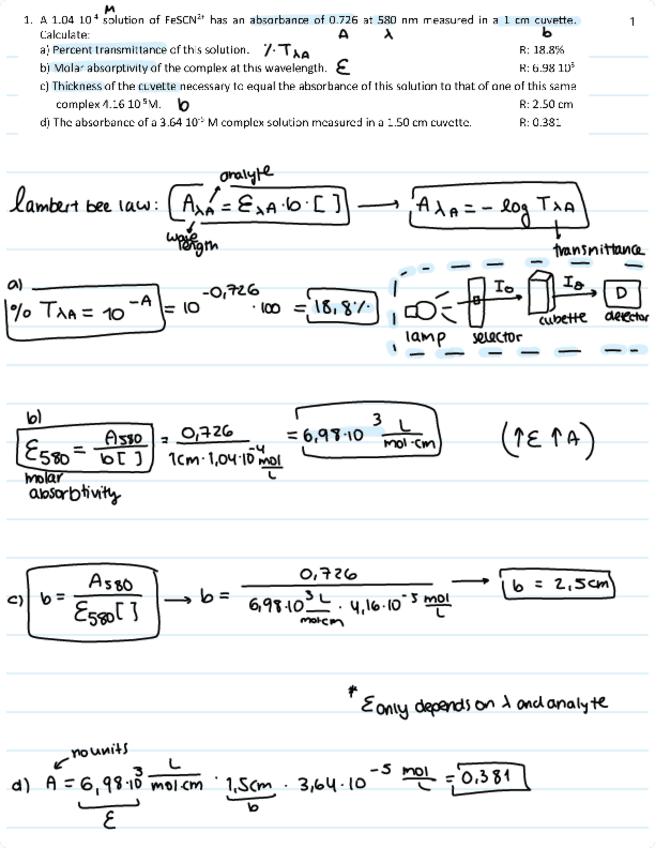 1. A 1.04 10⁻⁴ M solution of FeSCN²⁺ has an absorbance of 0.726 at 580 nm measured in a 1 cm cuvette. 1
Calculate: A λ b
a) Percent transmittance of this solution. %T λA R: 18.8%
b) Molar absorptivity of the complex at this wavelength. Ɛ R: 6.98 10³
c) Thickness of the cuvette necessary to equal the absorbance of this solution to that of one of this same
complex 4.16 10⁻⁵M. b R: 2.50 cm
d) The absorbance of a 3.64 10⁻⁵ M complex solution measured in a 1.50 cm cuvette. R: 0.381
analyte
lambert bee law: AλA = ƐλA · b · [ ] → AλA = - log TλA
wave length
transmittance
a) % TλA = 10^-A = 10^-0,726 · 100 = 18,8%
I₀ D
lamp selector cubette detector
b) Ɛ580 = A580 / b[ ] = 0,726 / 1cm · 1,04·10⁻⁴ mol/L = 6,98·10³ L/mol·cm (↑Ɛ ↑A)
molar
absorbtivity
c) b = A580 / Ɛ580[ ] → b = 0,726 / 6,98·10³ L/mol·cm · 4,16·10⁻⁵ mol/L → b = 2,5cm
* Ɛ only depends on λ and analyte
no units
d) A = 6,98·10³ L/mol·cm · 1,5cm · 3,64·10⁻⁵ mol/L = 0,381
Ɛ b